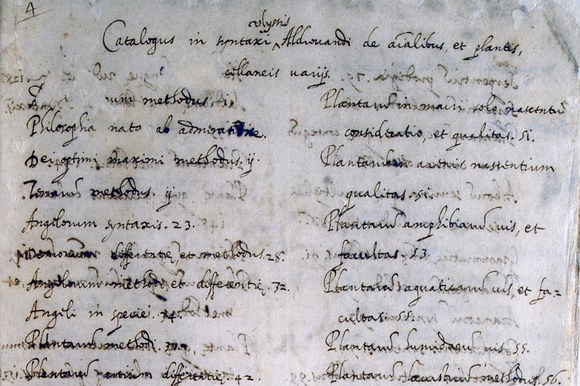 4
ulyssis
Catalogus in syntaxi Aldrovandi de aĩalibus, et plantis,
cellaneis varijs.
methodus.
Philosophia nato ab admeratione.
Dei optimi maximi methodus. ij
methodus. ij
Angelorum syntaxis. 23.
Demonum differentię, et methodus. 28.
Angelorum methodi, et differentię. 32.
Angeli in specie. 34.
Plantarum methodi.
Plantarum partium differentię. 42.
Plantarum in mari sole nascentiū
consideratio, et qualitas. 51.
Plantarum in arenis nascentium
qualitas. 51.
Plantarum amphibiarum uis, et
facultas. 53
Plantarum aquaticarum uis, et fa-
cultas. 55.
Plantarum uis. 55.
Plantarum lacustrium methodus. 56.